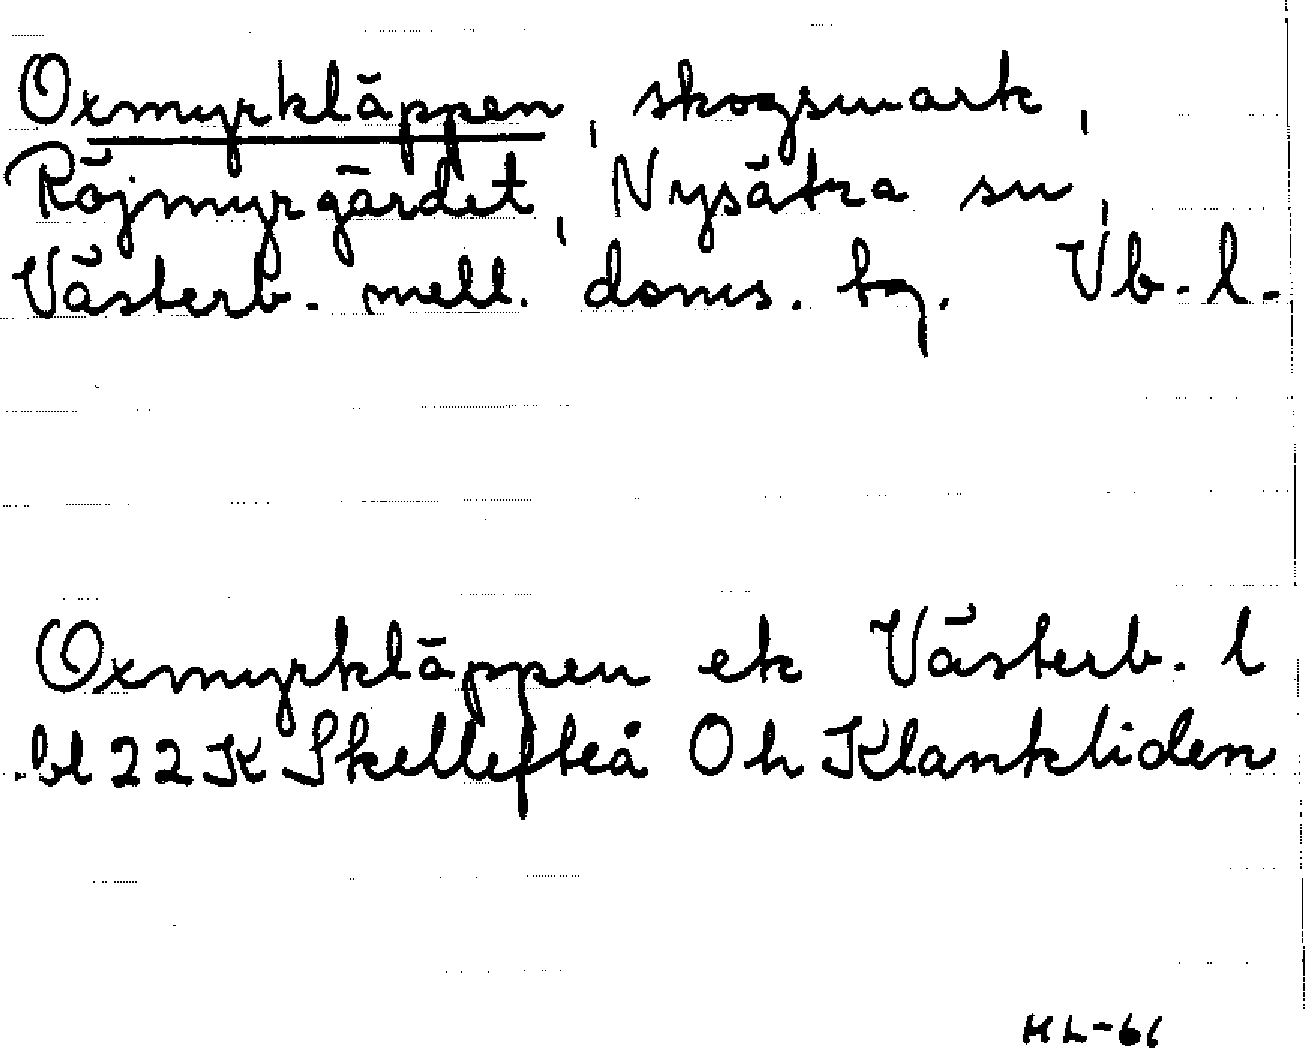 Oxmyrkläppen, skogsmark,
Röjmyrgärdet, Nysätra sn,
Västerb. mell. doms. bg. Vb. l.
Oxmyrkläppen ek Västerb. l
bl 22 K Skellefteå Oh Klankliden
HL-66